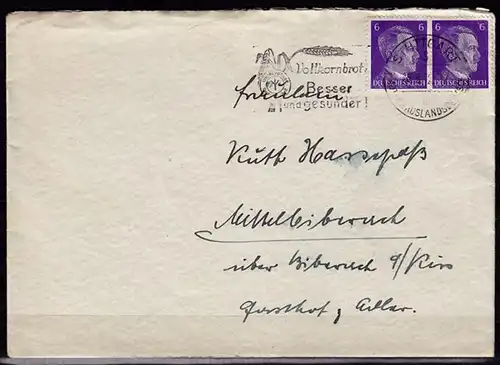 6 6 6 6
DEUTSCHES REICH DEUTSCHES REICH
STUTTGART
AUSLANDS
Vollkornbrot
Besser
und gesünder!
Fräulein
Ruth Hassepaß
Mittelbiberach
über Biberach a/Riss
Gasthof z. Adler.